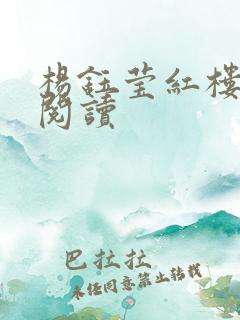 楊鈺瑩紅樓
閱讀
巴拉拉
未經同意禁止轉載